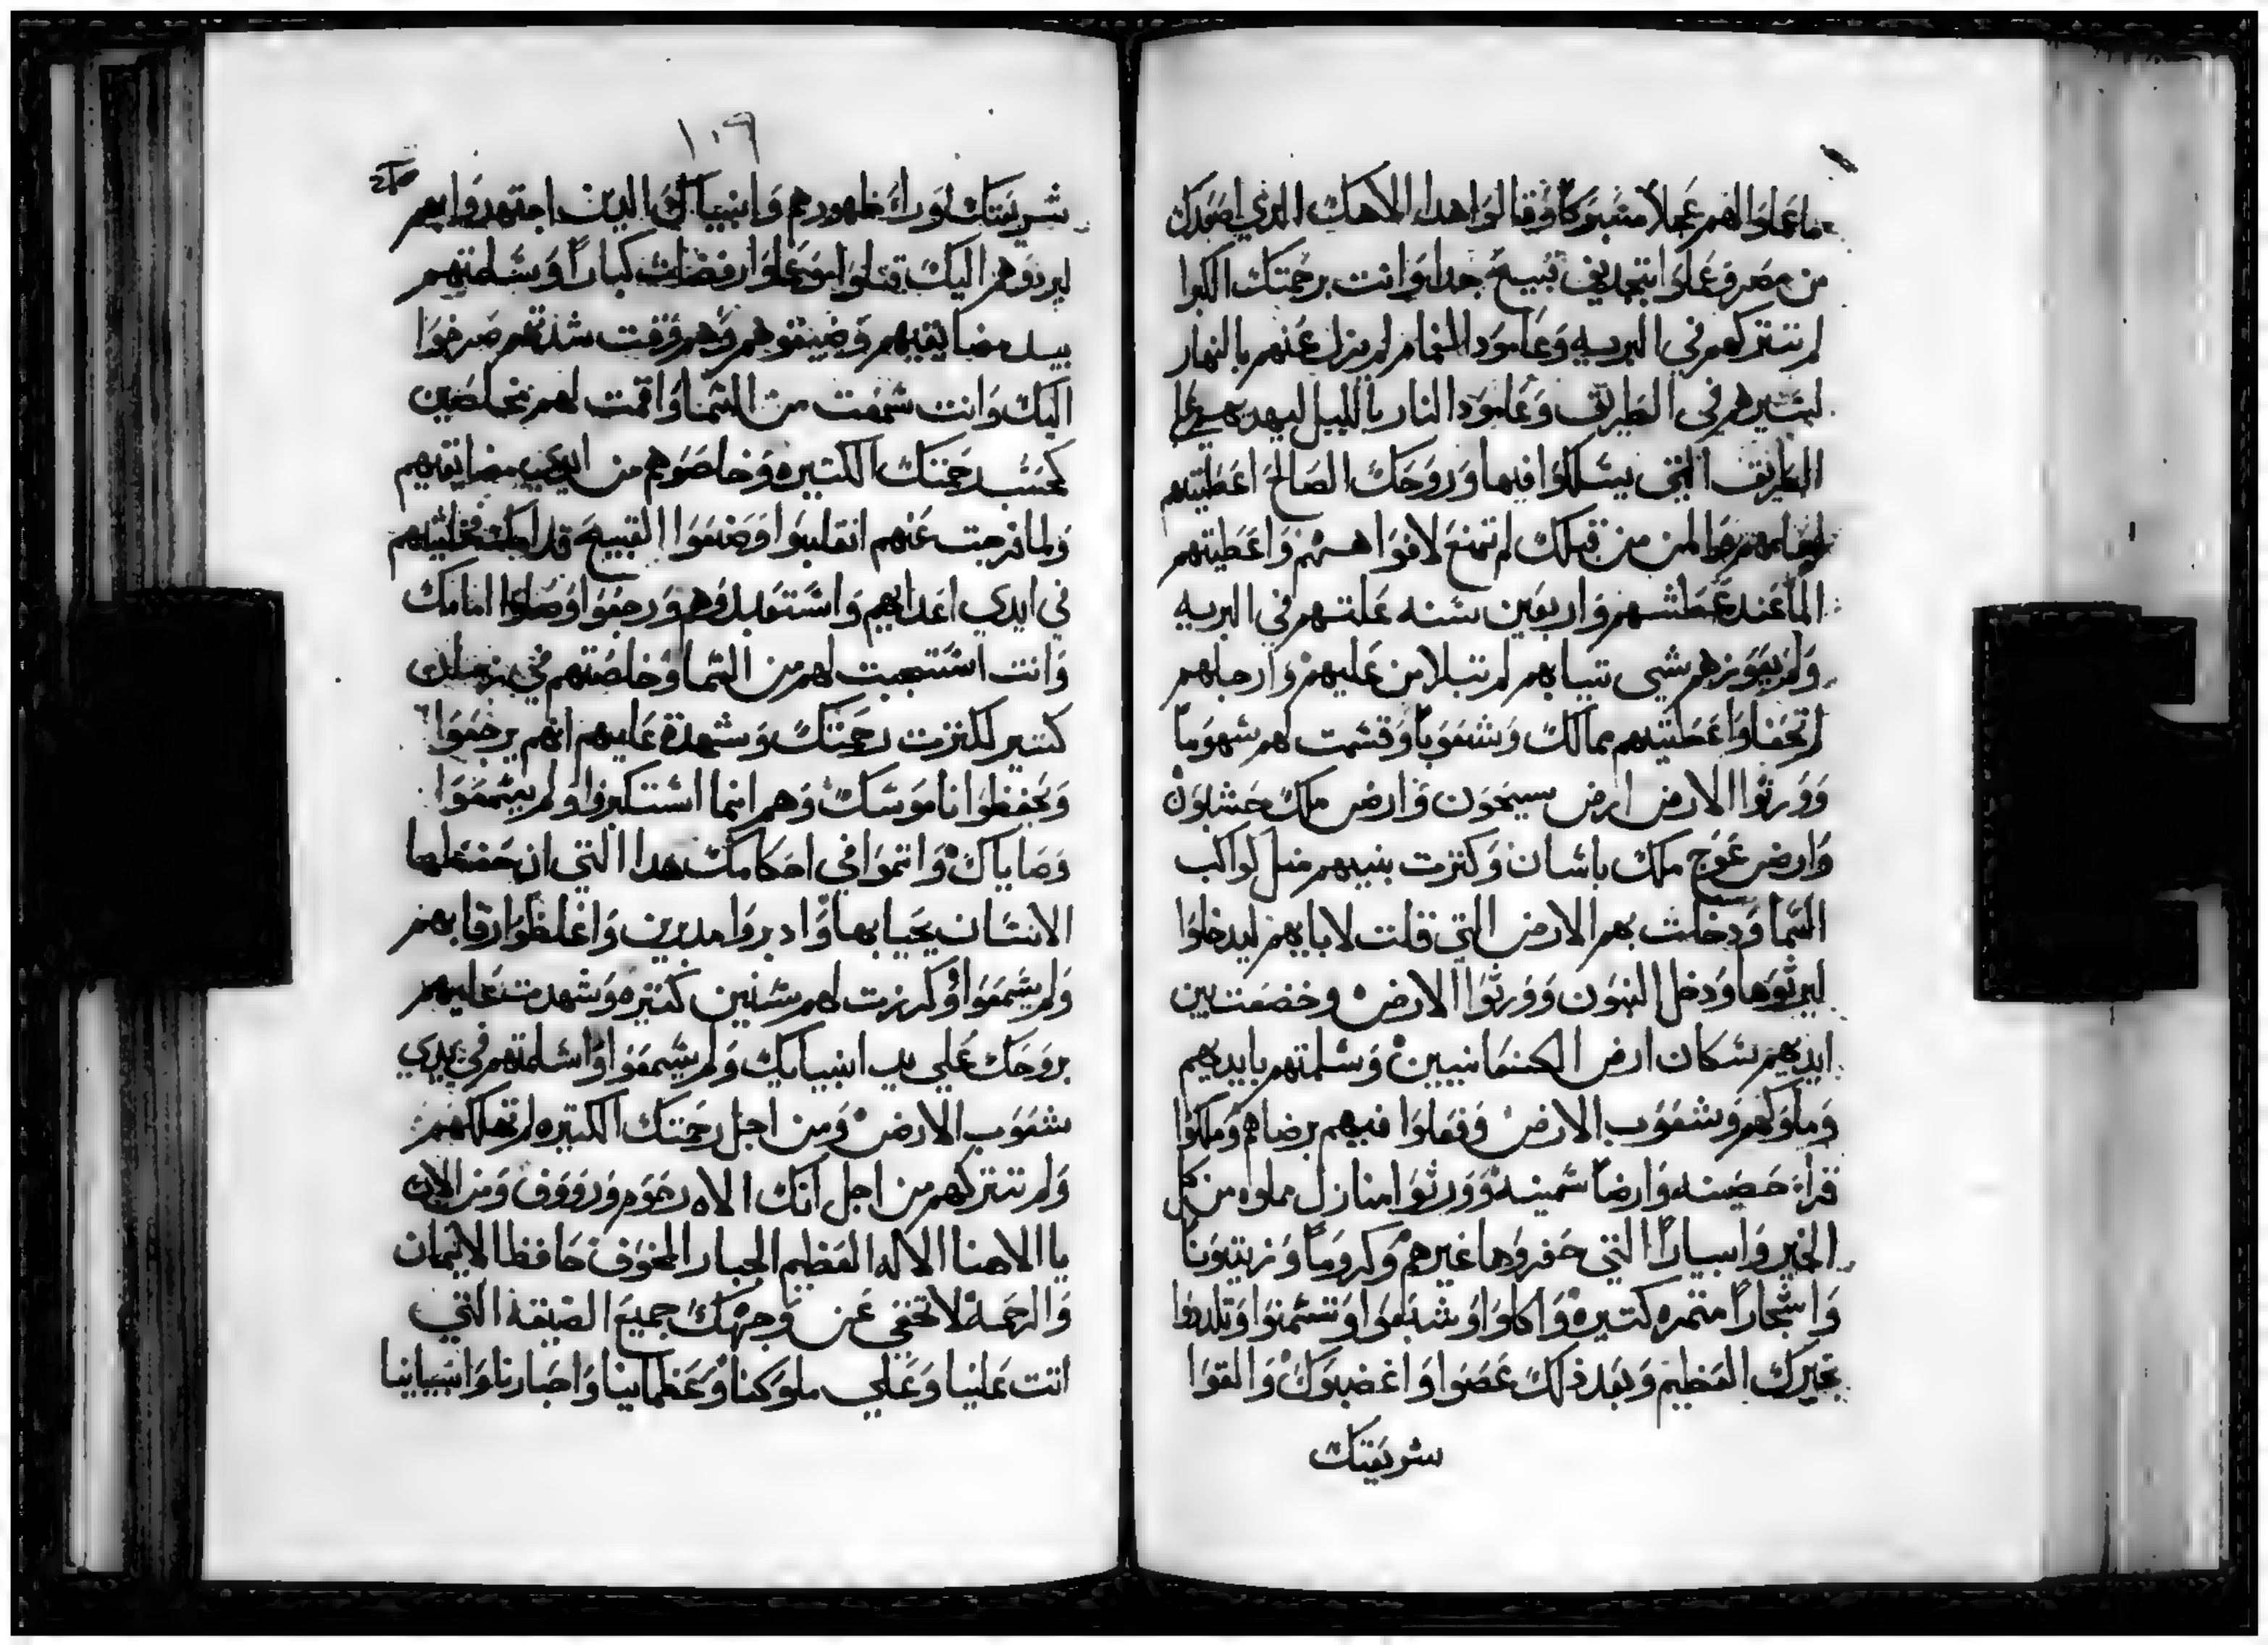 ما عملوا لهم عجلا مسبوكا وقالوا هدا الاهك الدي اصعدك
من مصر وعملوا تجديف قبيح جدا وانت برحمتك الكبرا
لم تتركهم في البريه وعامود الغمام لم يزل عنهم بالنهار
لتسيرهم في الطريق وعامود النار بالليل ليهديهم علي
الطريق التي يسلكوا فيها وروحك الصالح اعطيتهم
والمن من قبلك لم تمنع لافواههم واعطيتهم
الما عند عطشهم واربعين سنه علتهم في البريه
ولم يعوزهم شي تيابهم لم تبلا من عليهم وارجلهم
لم تحفا واعطيتهم ممالك وشعوبا وقسمت لهم سهوما
وورثوا الارض ارض سيحون وارض ملك حشبون
وارض عوج ملك باسان وكترت بنيهم متل كواكب
السما ودخلت بهم الارض التي قلت لابايهم ليدخلوا
ليرثوها ودخل البنون وورثوا الارض وخضعت بين
ايديهم سكان ارض الكنعانيين وسلمتهم بايديهم
وملوكهم وشعوب الارض وفعلوا فيهم برضاهم وملكوا
قراء حصينه وارضا سمينه وورثوا منازل مملوه من كل
الخير وابيارا التي حفروها غيرهم وكروما وزيتونا
واشجارا متمره كتيره واكلوا وشبعوا وتسمنوا وتلددوا
بخيرك العظيم وبعد ذلك عصوا واغضبوك والقوا
شريعتك
١٠٩
شريعتك لوراء ظهورهم وانبياك الدين اجتهدوا بهم
ليردوهم اليك قتلوا وعملوا رفضات كبارا وسلمتهم
بيد مضايقيهم وضيقوهم وهم وقت شدتهم صرخوا
اليك وانت سمعت من السما واقمت لهم مخلصين
كحسب رحمتك الكتيره وخلصوهم من ايدي مضايقيهم
ولما فرجت عنهم انقلبوا وصنعوا القبيح قدامك فخليتهم
في ايدي اعدايهم واستعبدوهم ورجعوا وصلوا امامك
وانت استجبت لهم من السما وخلصتهم في زمان
كتير لكترت رحمتك وشهدة عليهم انهم يرجعوا
ويحفظوا ناموسك وهم انما استكبروا ولم يسمعوا
وصاياك واتموا في احكامك هدا التي ان حفظها
الانسان يحيا بها وادبروا مدبرين واغلظوا رقابهم
ولم يسمعوا وكررت لهم سنين كتيره وشهدت عليهم
بروحك علي يد انبيايك ولم يسمعوا واسلمتهم في يدي
شعوب الارض ومن اجل رحمتك الكتيره لم تهلكهم
ولم تتركهم من اجل انك الاه رحوم ورووف ومن الان
يا الاهنا الاله العظيم الجبار المخوف حافظ الايمان
والرحمه لا تخفي عن وجهك جميع الضيقة التي
اتت علينا وعلي ملوكنا وعظماينا واحبارنا وانبياينا